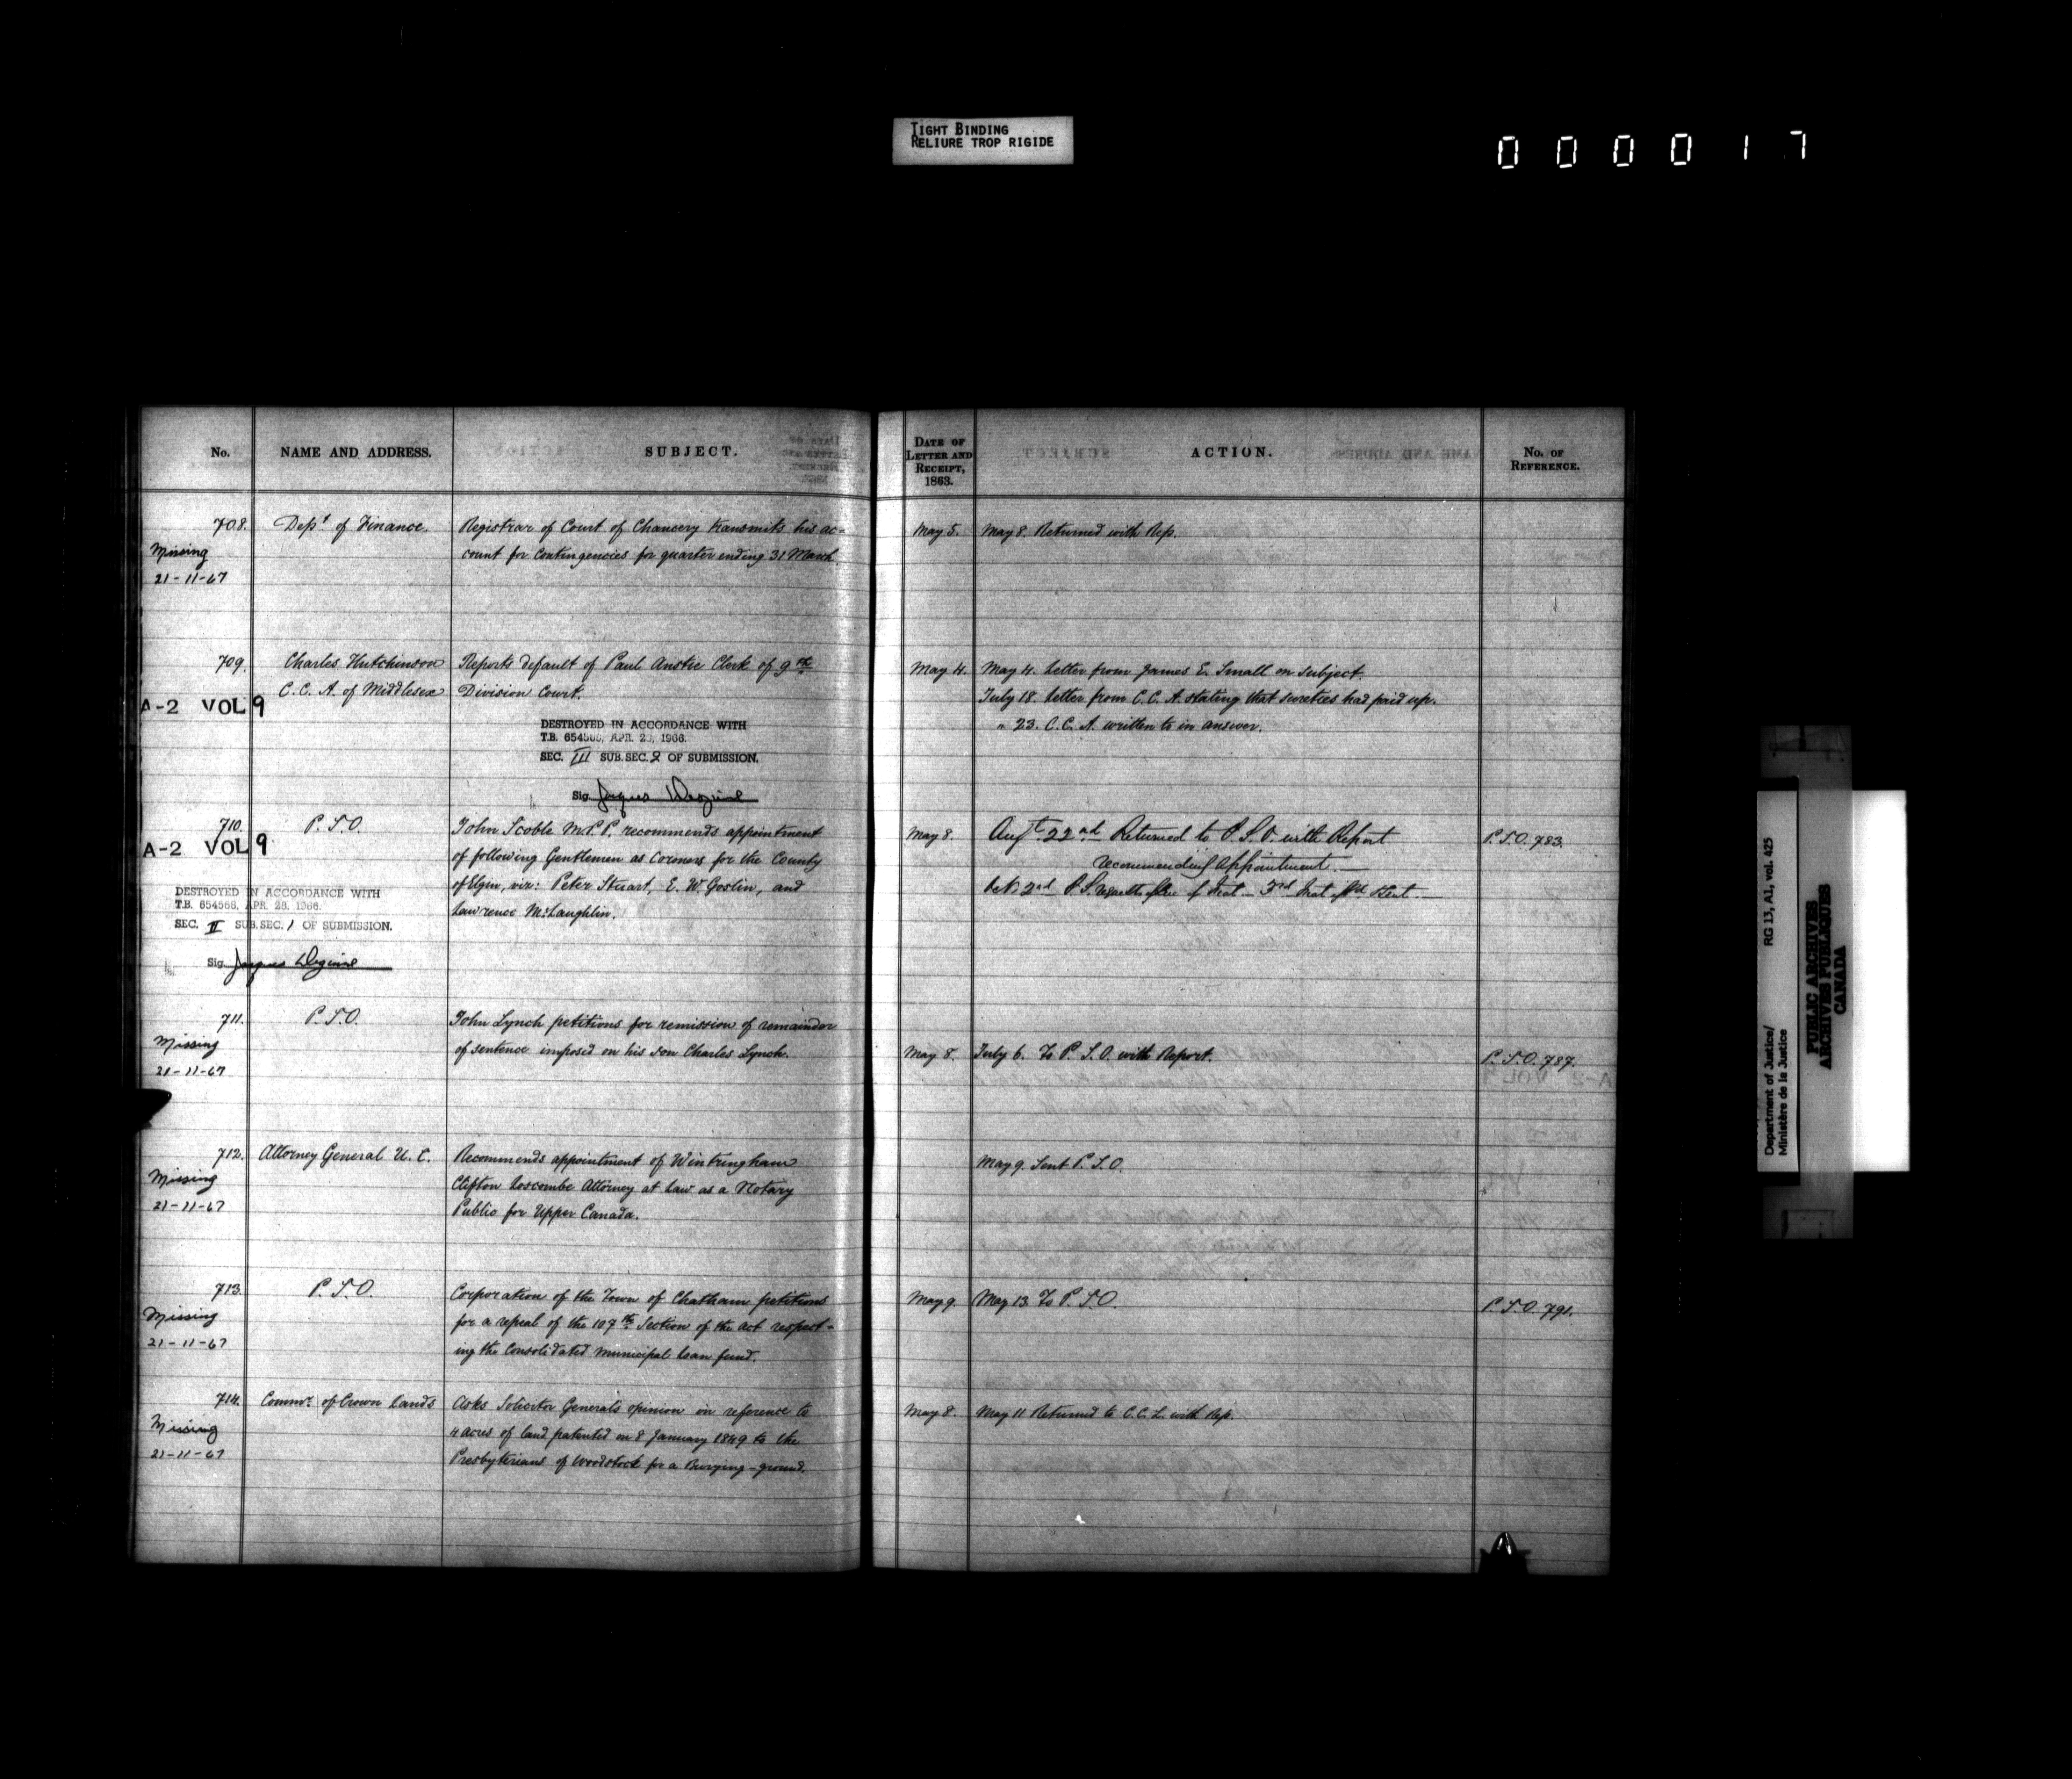 TIGHT BINDING
RELIURE TROP RIGIDE
000017
No.
NAME AND ADDRESS.
SUBJECT.
DATE OF
LETTER AND
RECEIPT,
1863.
ACTION.
No. OF
REFERENCE.
708. Dept. of Finance. Registrar of Court of Chancery transmits his ac-
count for Contingencies for quarter ending 31 March.
Missing
21-11-67
May 5. May 8. Returned with Rep.
709. Charles Hutchinson Reports default of Paul Anstie Clerk of 9th
C.C.A. of Middlesex Division Court.
A-2 VOL 9
DESTROYED IN ACCORDANCE WITH
T.B. 654568, APR. 28, 1966.
SEC. III SUB.SEC. 2 OF SUBMISSION.
Sig.
May 4. May 4. Letter from James E. Small on subject.
July 18. Letter from C.C.A. stating that sureties had paid up.
" 23. C.C.A. written to in answer.
710. P.S.O. John Scoble M.P.P. recommends appointment
of following Gentlemen as Coroners for the County
of Elgin, viz: Peter Stuart, E. W. Goslin, and
Lawrence McLaughlin.
A-2 VOL 9
DESTROYED IN ACCORDANCE WITH
T.B. 654568, APR. 28, 1966.
SEC. II SUB.SEC. 1 OF SUBMISSION.
Sig. Jacques
May 8. Augt 22nd Returned to P.S.O. with Report
recommending appointment.—
Oct. 2nd P.S. 3rd
P.S.O. 783.
711. P.S.O. John Lynch petitions for remission of remainder
of sentence imposed on his son Charles Lynch.
Missing
21-11-67
May 8. July 6. To P.S.O. with Report.
P.S.O. 787.
712. Attorney General U.C. Recommends appointment of Wintringham
Clifton Loscombe Attorney at Law as a Notary
Public for Upper Canada.
Missing
21-11-67
May 9. Sent P.S.O.
713. P.S.O. Corporation of the Town of Chatham petitions
for a repeal of the 107th Section of the Act respect-
ing the Consolidated Municipal Loan fund.
Missing
21-11-67
May 9. May 13. To P.S.O.
P.S.O. 791.
714. Commr. of Crown Lands Asks Solicitor General's opinion in reference to
4 acres of land patented on 8 January 1849 to the
Presbyterians of Woodstock for a Burying-ground.
Missing
21-11-67
May 8. May 11 Returned to C.C.L. with Rep.
Department of Justice/ RG 13, A1, vol. 425
Ministère de la Justice
PUBLIC ARCHIVES
ARCHIVES PUBLIQUES
CANADA